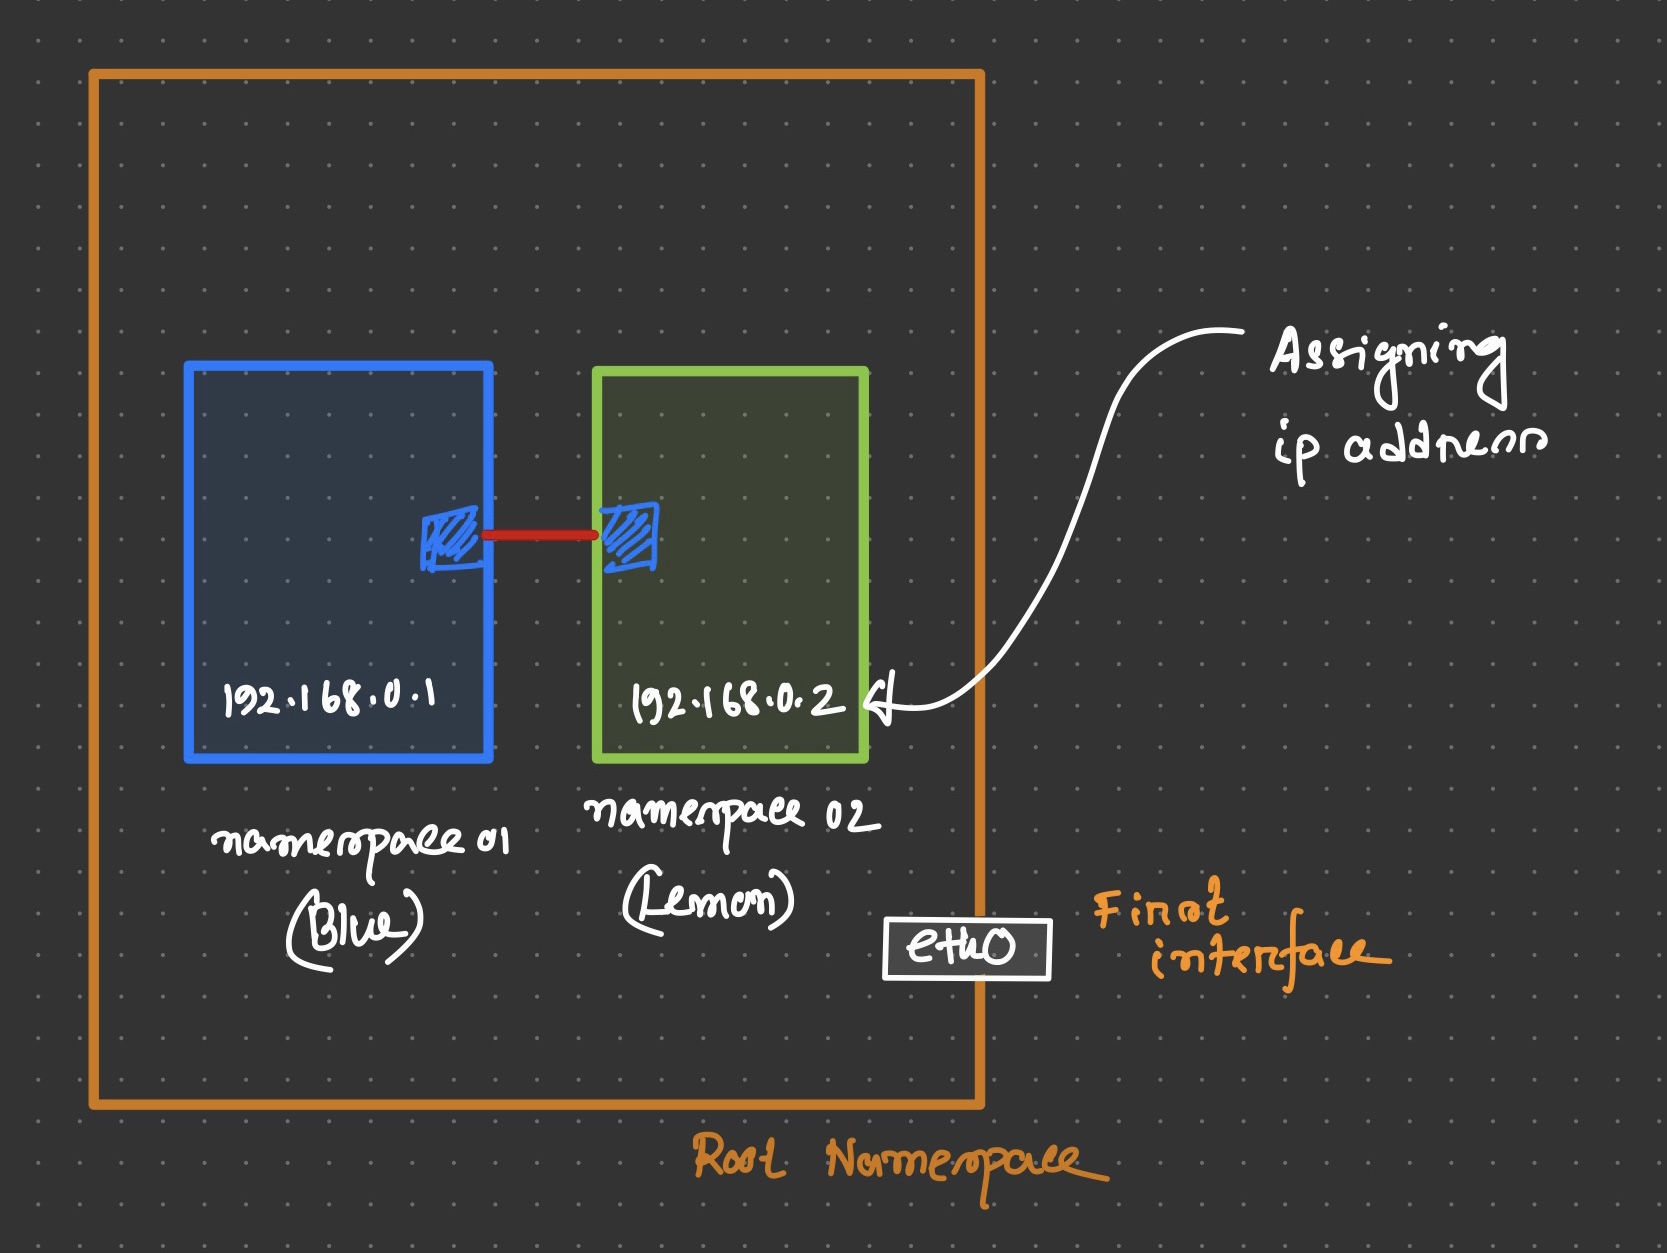 Assigning
ip address
192.168.0.1
192.168.0.2
namespace 01
(Blue)
namespace 02
(Lemon)
eth0
First
interface
Root Namespace